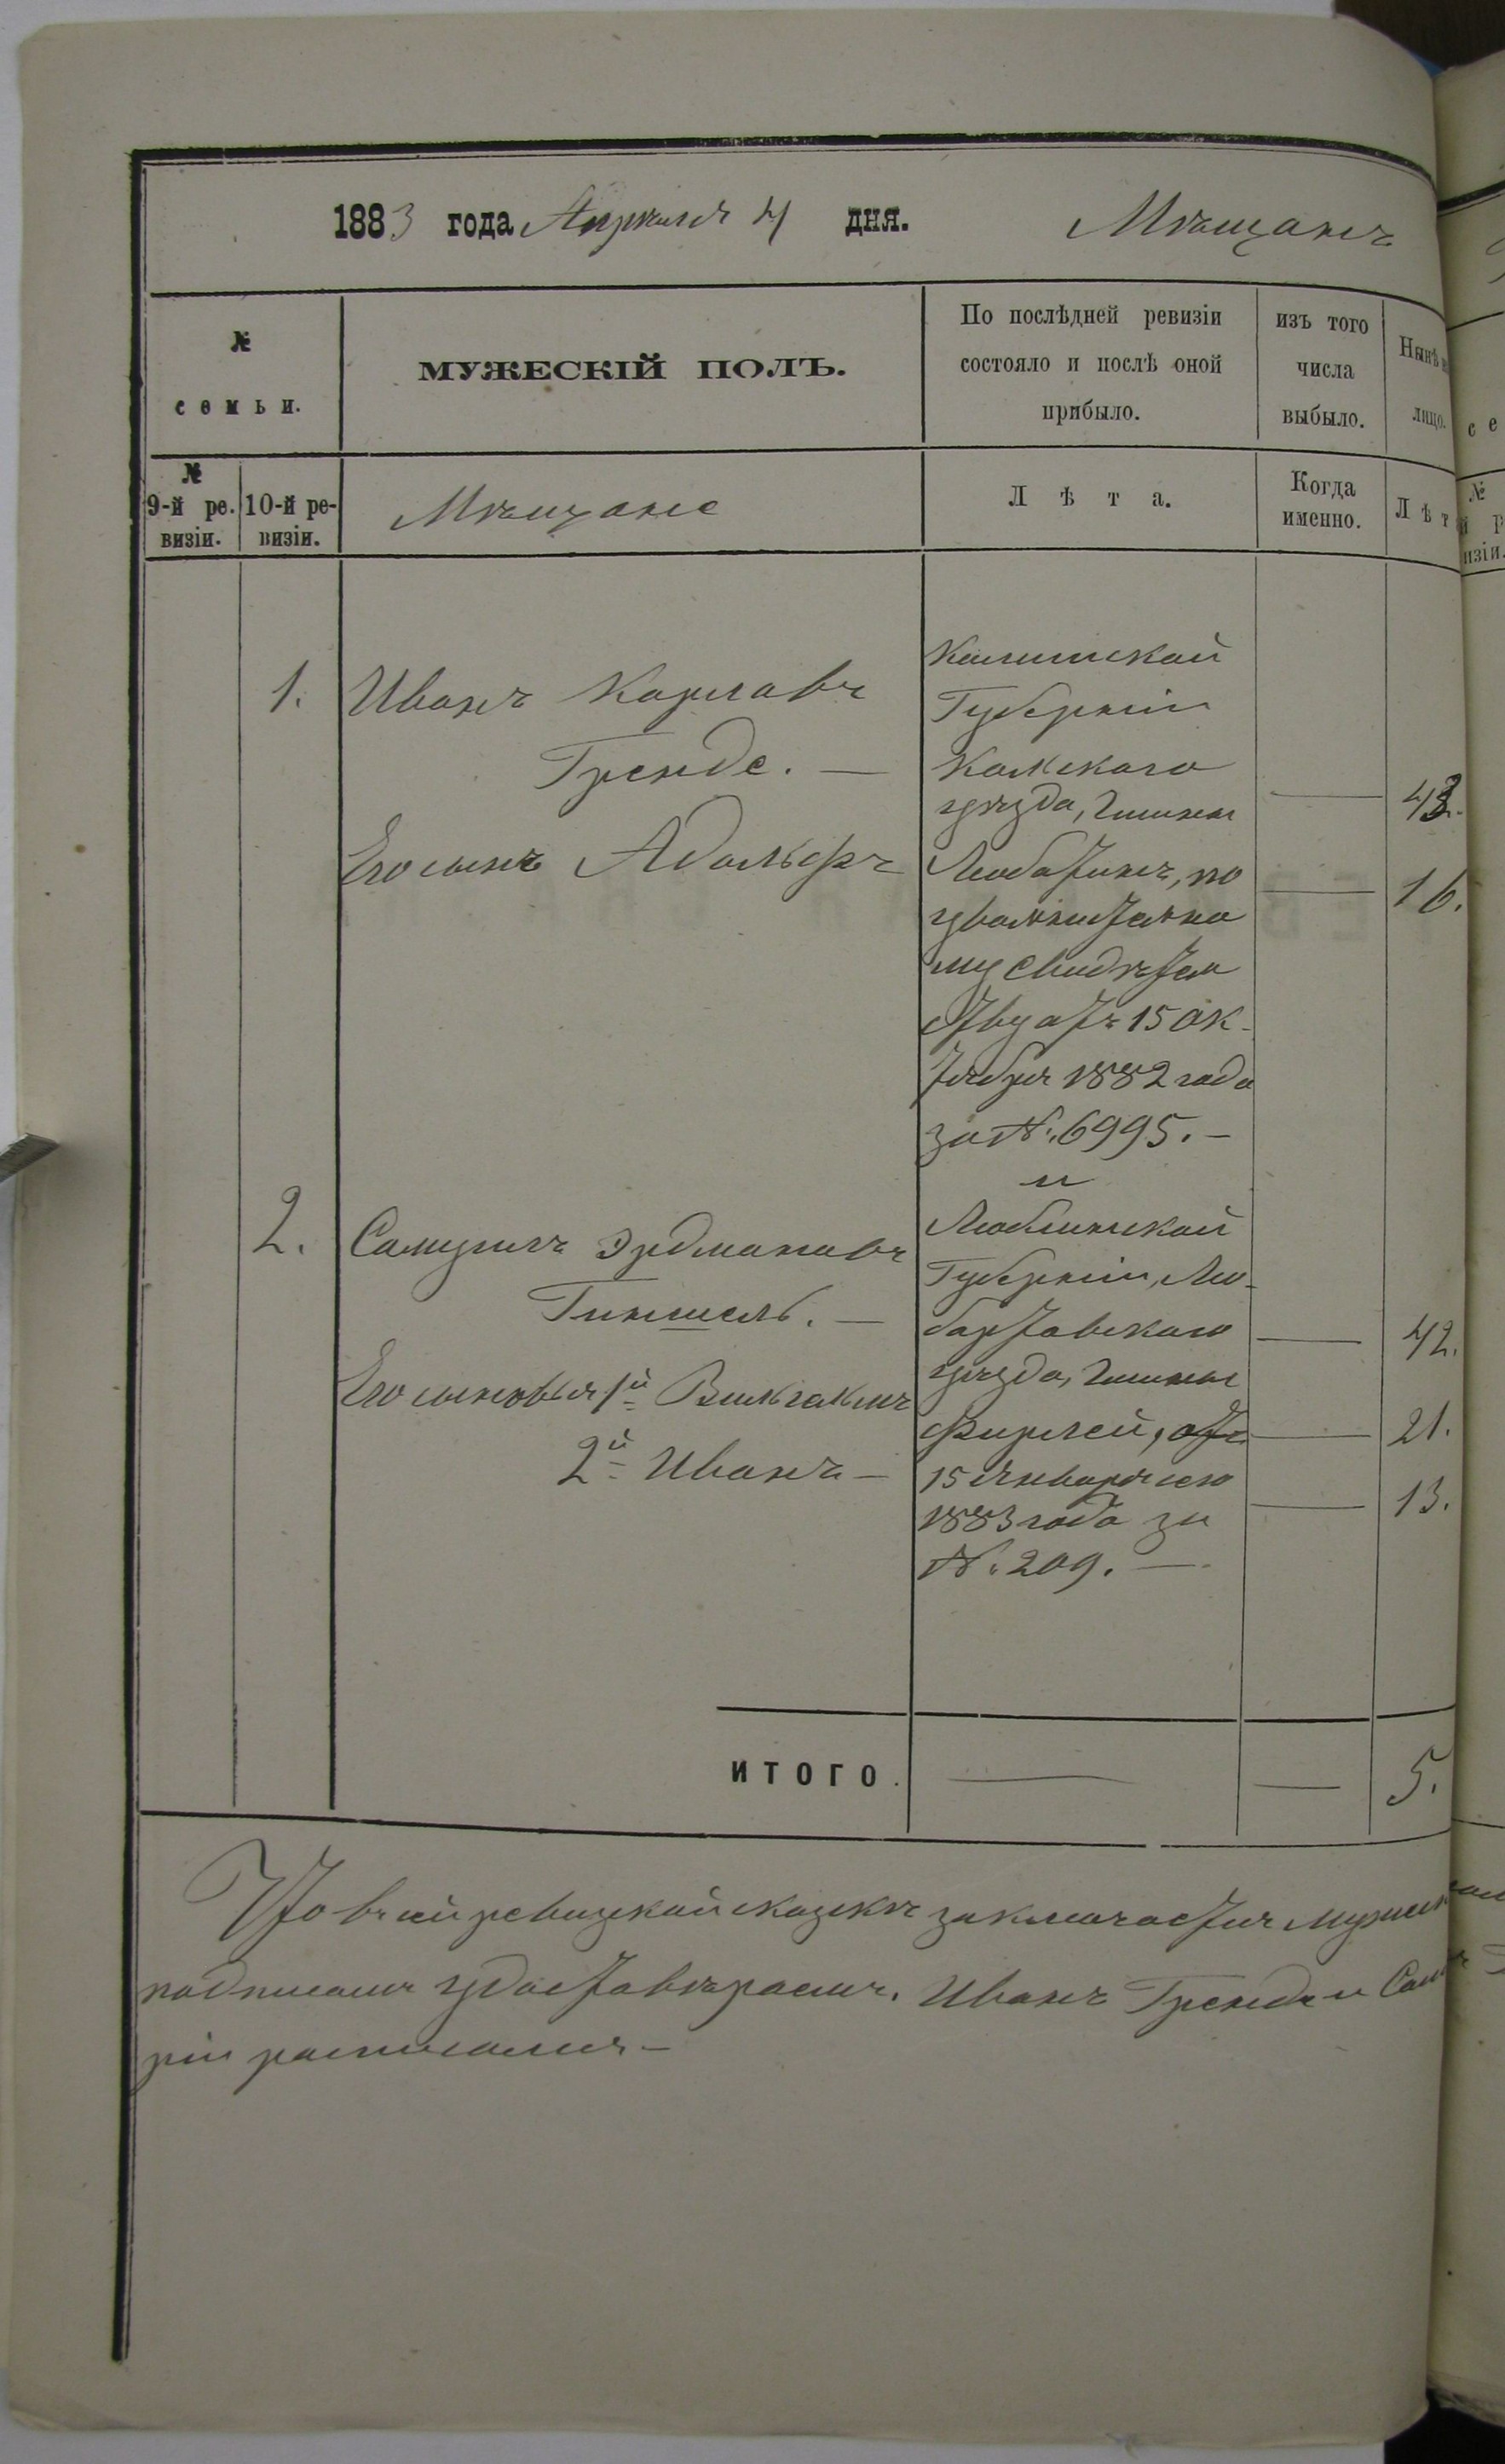 1883 года Апрѣля 4 дня. Мѣщанъ
№ семьи.
МУЖЕСКІЙ ПОЛЪ.
По послѣдней ревизіи состояло и послѣ оной прибыло.
изъ того числа выбыло.
Нынѣ
лицо.
№ 9-й ре-визіи.
10-й ре-визіи.
Мѣщане
Лѣта.
Когда именно.
Лѣт
1.
Иванъ Карловъ
Тренде. —
43.
Его сынъ Адольфъ
16.
Калишской
Губерніи
Кольскаго
уѣзда, Гмины
Любатинъ, по
увольнительно
му свидѣтель
ству отъ 15 Ок-
тября 1882 года
за №. 6995. —
и
2.
Самуилъ Эрдмановъ
Гинцель. —
42.
Его сыновья 1й Вильгельмъ
21.
2й Иванъ —
13.
Люблинской
Губерніи, Лю-
бартовскаго
уѣзда, Гмины
Фирлей, отъ
15 Января сего
1883 года за
№. 209. —
ИТОГО.
5.
Что въ сей ревизской сказкѣ заключается мужеск
подписомъ удостовѣряемъ. Иванъ Тренде и Сам
ріи росписались —